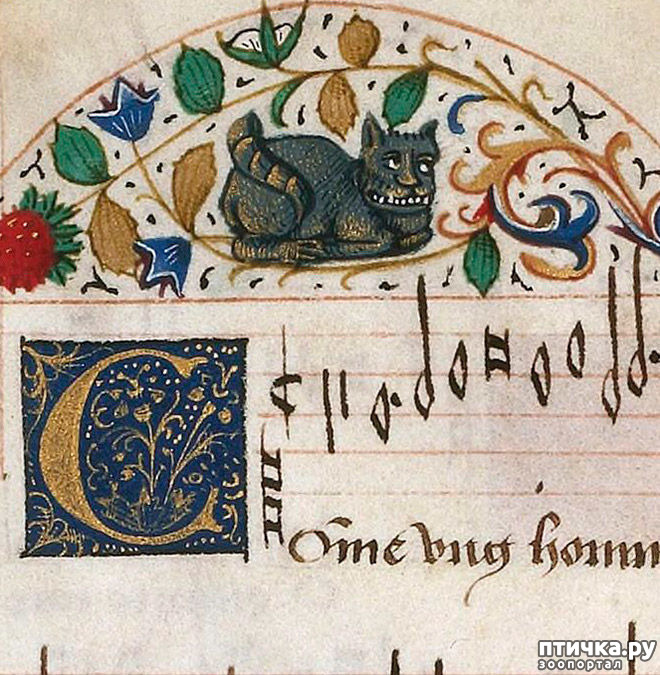 C
Om̃e vng homm
ПТИЧКА.РУ
ЗООПОРТАЛ